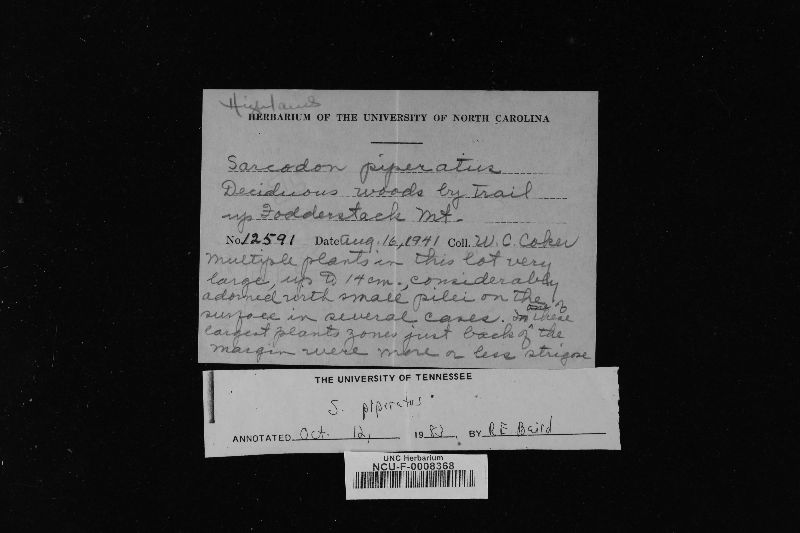 Highlands
HERBARIUM OF THE UNIVERSITY OF NORTH CAROLINA
Sarcodon piperatus
Deciduous woods by trail
up Fodderstack Mt.
No. 12591 Date Aug. 16, 1941 Coll. W. C. Coker
Multiple plants in this lot very
large, up to 14 cm., considerably
adorned with small pilei on the
surface in several cases. In these
largest plants zones just back of the
margin were more or less strigose
THE UNIVERSITY OF TENNESSEE
S. piperatus
ANNOTATED Oct. 12, 19 BY R E Baird
UNC Herbarium
NCU-F-0008368